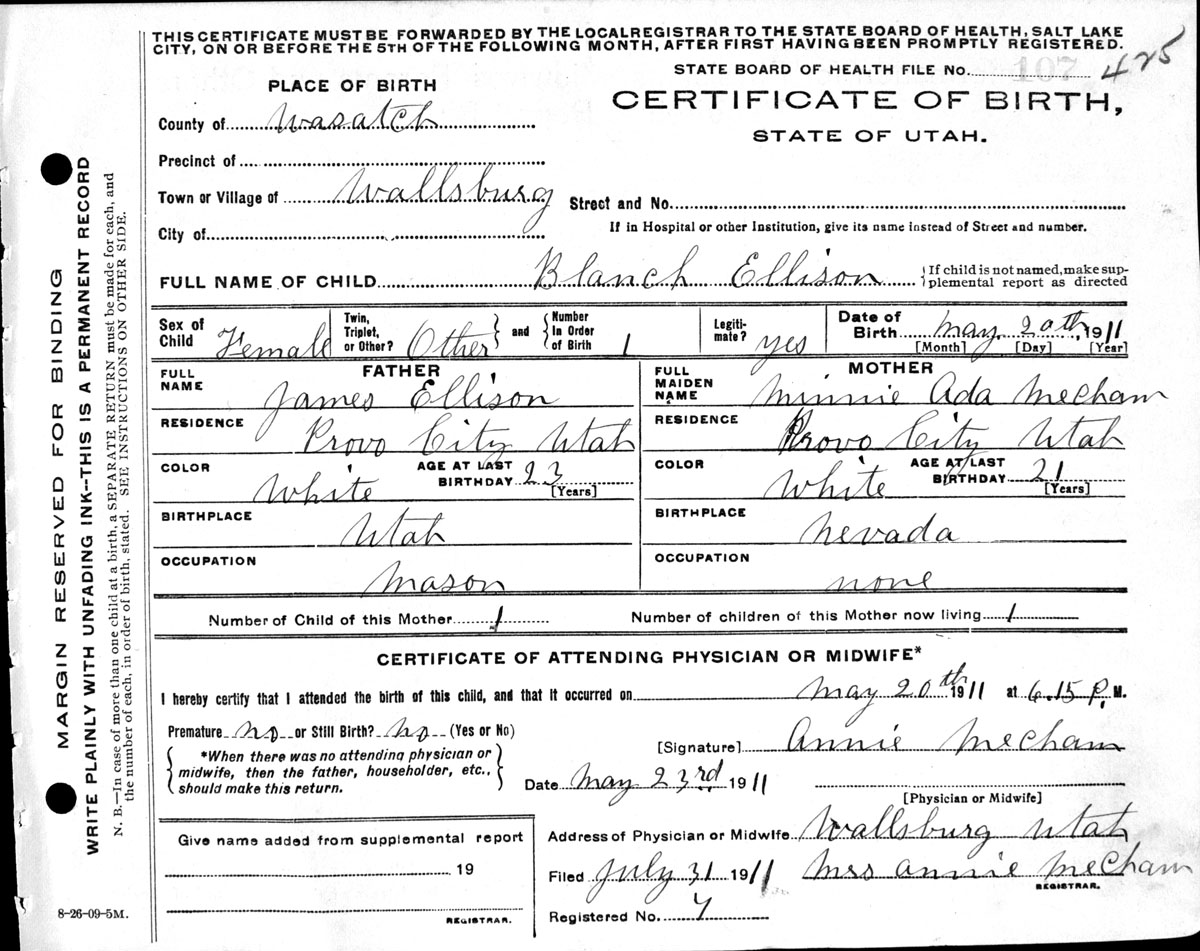 THIS CERTIFICATE MUST BE FORWARDED BY THE LOCALREGISTRAR TO THE STATE BOARD OF HEALTH, SALT LAKE
CITY, ON OR BEFORE THE 5TH OF THE FOLLOWING MONTH, AFTER FIRST HAVING BEEN PROMPTLY REGISTERED.
STATE BOARD OF HEALTH FILE No. 107 425
PLACE OF BIRTH
CERTIFICATE OF BIRTH,
STATE OF UTAH.
County of Wasatch
Precinct of
Town or Village of Wallsburg
Street and No.
City of
If in Hospital or other Institution, give its name instead of Street and number.
FULL NAME OF CHILD Blanch Ellison
If child is not named, make sup-
plemental report as directed
Sex of Child Female
Twin, Triplet, or Other? Other and Number In Order of Birth 1
Legiti-mate? yes
Date of Birth May 20th, 1911
[Month] [Day] [Year]
FATHER
FULL NAME James Ellison
RESIDENCE Provo City Utah
COLOR White AGE AT LAST BIRTHDAY 23
[Years]
BIRTHPLACE Utah
OCCUPATION Mason
MOTHER
FULL MAIDEN NAME Minnie Ada Mecham
RESIDENCE Provo City Utah
COLOR White AGE AT LAST BIRTHDAY 21
[Years]
BIRTHPLACE Nevada
OCCUPATION none
Number of Child of this Mother 1
Number of children of this Mother now living 1
CERTIFICATE OF ATTENDING PHYSICIAN OR MIDWIFE*
I hereby certify that I attended the birth of this child, and that it occurred on May 20th 1911 at 6.15 P. M.
Premature no or Still Birth? no (Yes or No)
*When there was no attending physician or
midwife, then the father, householder, etc.,
should make this return.
[Signature] Annie Mecham
Date May 23rd 1911
[Physician or Midwife]
Give name added from supplemental report
19
REGISTRAR.
Address of Physician or Midwife Wallsburg Utah
Filed July 31 1911 Mrs Annie Mecham
REGISTRAR.
Registered No. 7
8-26-09-5M.
MARGIN RESERVED FOR BINDING
WRITE PLAINLY WITH UNFADING INK--THIS IS A PERMANENT RECORD
N. B.—In case of more than one child at a birth, a SEPARATE RETURN must be made for each, and
the number of each, in order of birth, stated. SEE INSTRUCTIONS ON OTHER SIDE.